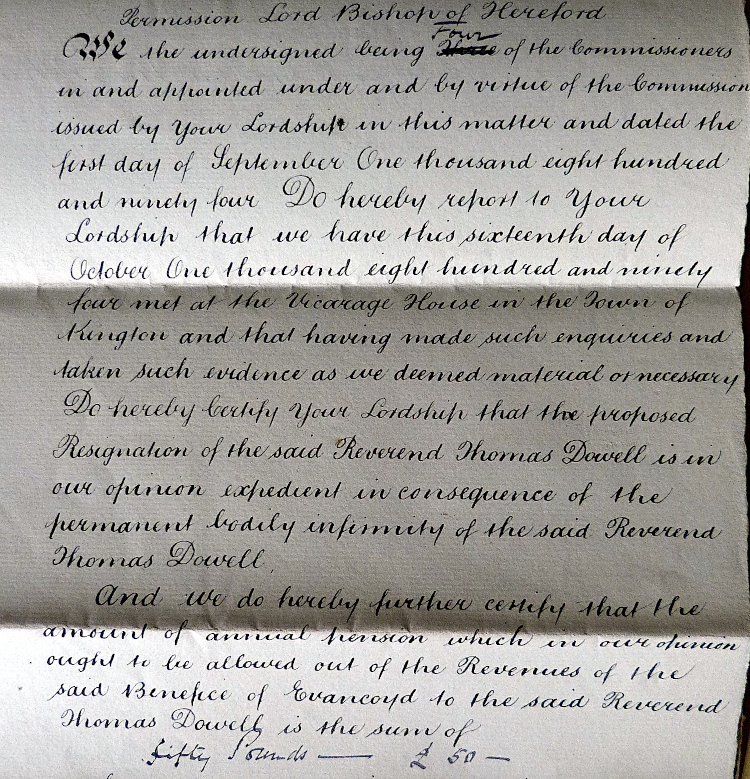 Permission Lord Bishop of Hereford
We the undersigned being Four of the Commissioners
in and appointed under and by virtue of the Commission
issued by Your Lordship in this matter and dated the
first day of September One thousand eight hundred
and ninety four Do hereby report to Your
Lordship that we have this sixteenth day of
October One thousand eight hundred and ninety
four met at the Vicarage House in the Town of
Kington and that having made such enquiries and
taken such evidence as we deemed material or necessary
Do hereby Certify Your Lordship that the proposed
Resignation of the said Reverend Thomas Dowell is in
our opinion expedient in consequence of the
permanent bodily infirmity of the said Reverend
Thomas Dowell.
And we do hereby further certify that the
amount of annual pension which in our opinion
ought to be allowed out of the Revenues of the
said Benefice of Evancoyd to the said Reverend
Thomas Dowell is the sum of
Fifty Pounds — £50 —